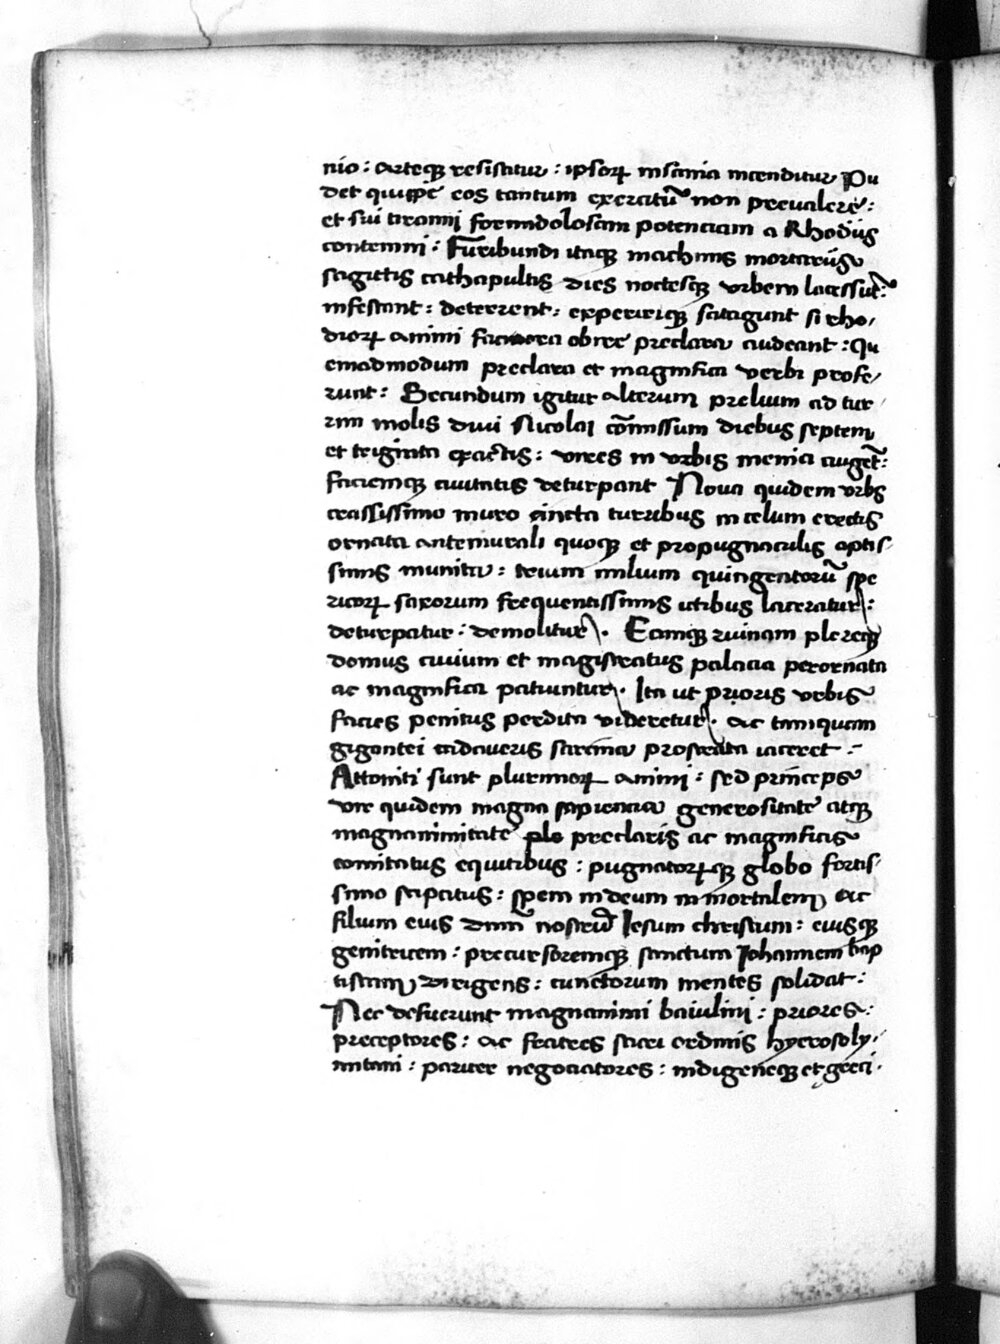 nio : arteq̃ resistitur : ipsoꝝ insania incenditur Pu
det quippe eos tantum exercitũ non prevalere :
et sui tiranni formidolosam potenciam a Rhodijs
contemni : Furibundi itaq̃ machinis mortarijs
sagittis cathapultis dies noctesq̃ urbem lacessũt :
infestant : deterrent : expeririq̃ satagunt si rho,
dioꝝ animi facinora obire preclara audeant : Qu
emadmodum preclara et magnifica verbi profe,
runt : Secundum igitur alterum prelium ad tur,
rim molis divi Nicolai cõmissum diebus septem
et triginta exactis : vires in urbis menia augẽt :
faciemq̃ civitatis deturpant Nova quidem urbs
crassissimo muro cincta turribus in celum erectis
ornata antemurali quoq̃ et propugnaculis aptis,
simis munita : trium milium quingentorũ spe
ricoꝝ saxorum frequentissimis ictibus laceratur :
deturpatur : demolitur . Eamq̃ ruinam plereq̃
domus civium et magistratus palacia perornata
ac magnifica patiuntur . Ita ut prioris urbis
facies penitus perdita videretur . ac tamquam
gigantei cadaveris sarcina prostrata iaceret :-
Attoniti sunt plurimoꝝ animi : sed princeps
vir quidem magna sapiencia generositate atq̃
magnanimitate plo preclaris ac magnificis
comitatus equitibus : pugnatoꝝq̃ globo fortis,
simo stipatus : spem in deum inmortalem ac
filium eius dnm̃ nostrũ Iesum christum : eiusq̃
genitricem : precursoremq̃ sanctum Johannem bap
tistam dirigens : cunctorum mentes solidat :
Nec defuerunt magnanimi baiulini : priores :
preceptores : ac fratres sacri ordinis hyerosoly,
mitani : pariter negociatores : indigeneq̃ et greci .